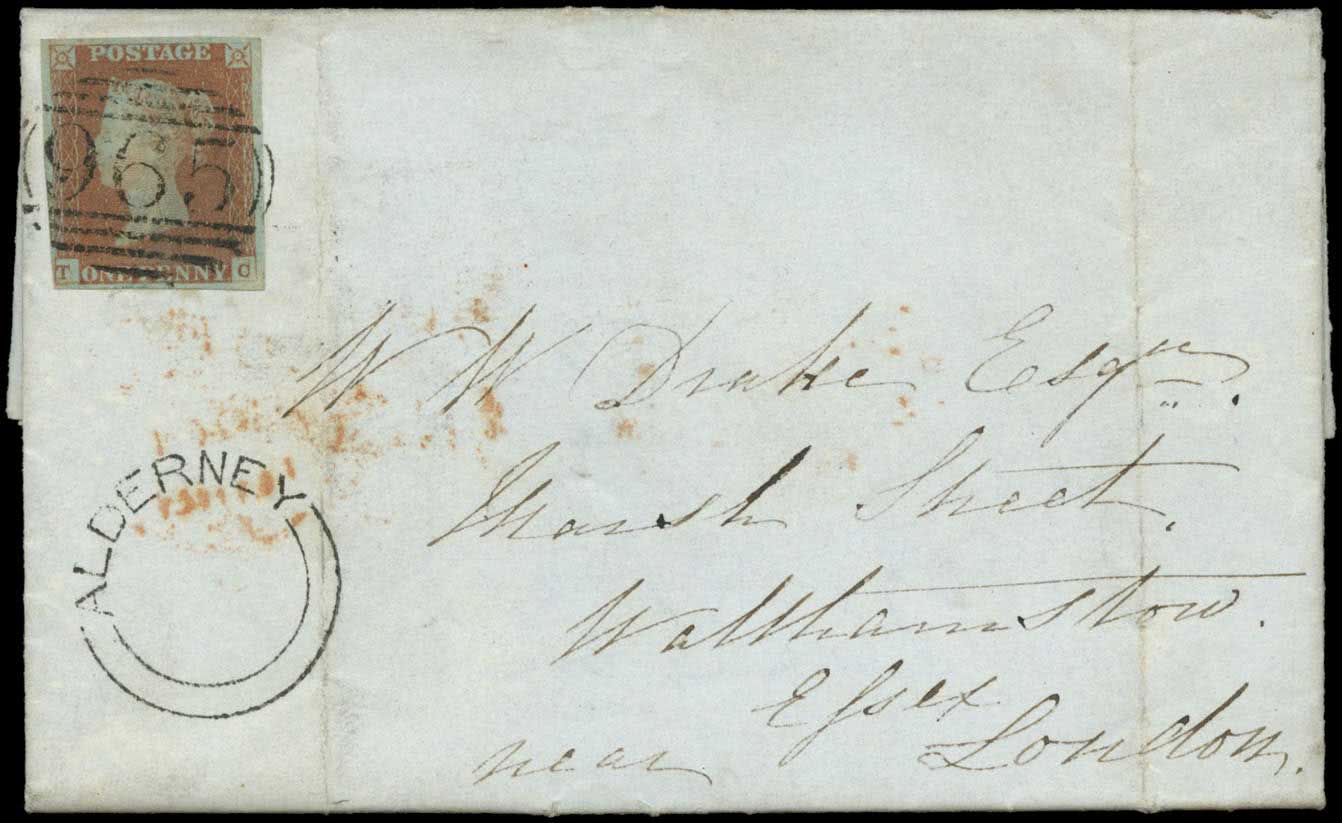 POSTAGE
965
T ONE PENNY C
ALDERNEY
W W Drake Esqre.
Marsh Street.
Walthamstow.
Essex
near London.